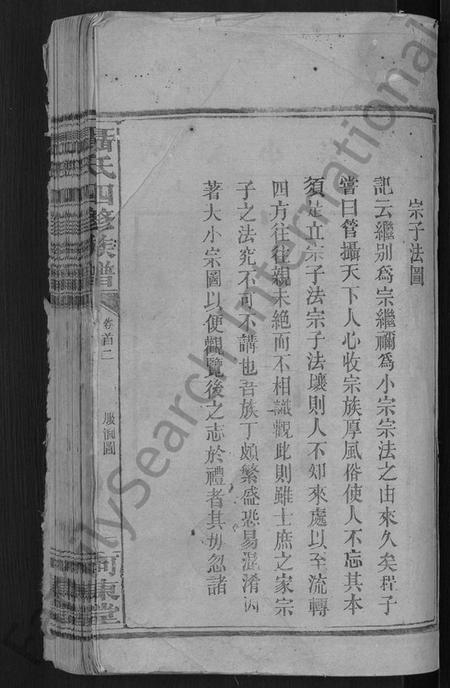 宗子法圖
記云繼别爲宗繼禰爲小宗宗法之由來久矣程子
嘗曰管攝天下人心收宗族厚風俗使人不忘其本
須是立宗子法宗子法壞則人不知來處以至流轉
四方往往親未絶而不相識觀此則雖士庶之家宗
子之法究不可不講也吾族丁頗繁盛恐易混淆因
著大小宗圖以便觀覽後之志於禮者其毋忽諸
聶氏四修族譜
卷首二
服制圖
河東堂
FamilySearch International